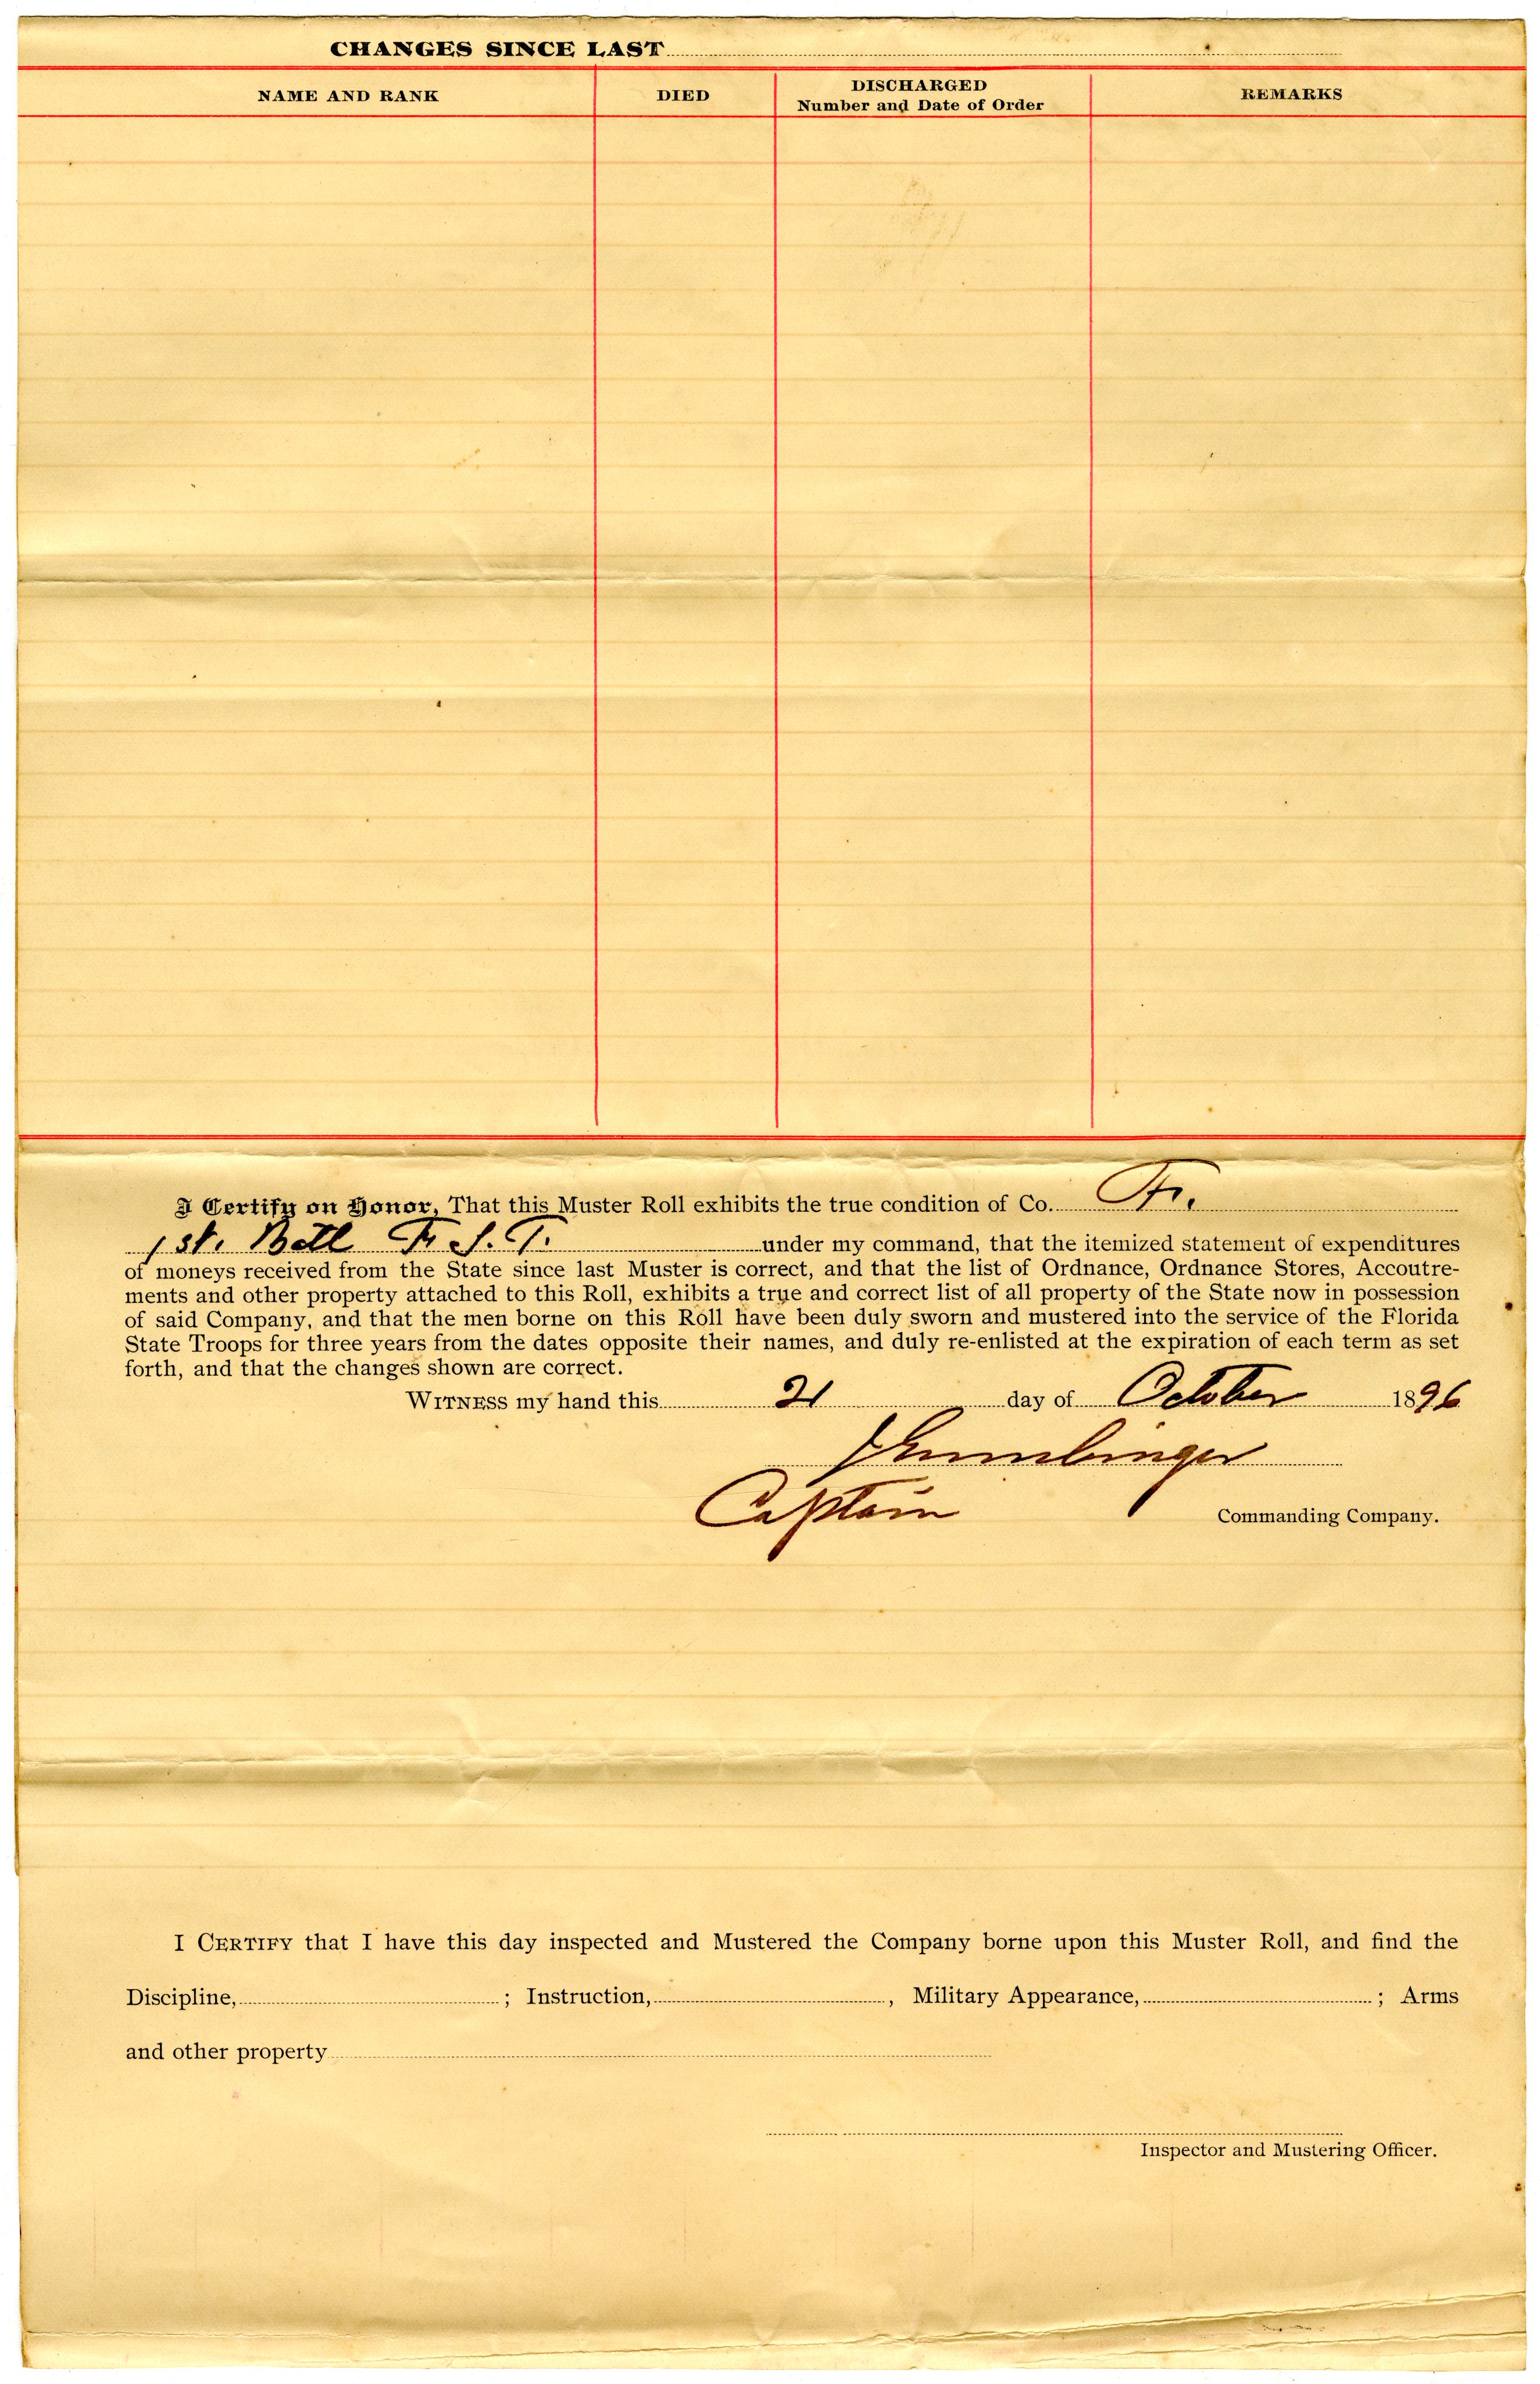 CHANGES SINCE LAST
NAME AND RANK
DIED
DISCHARGED
Number and Date of Order
REMARKS
I Certify on Honor, That this Muster Roll exhibits the true condition of Co. F.
1st. Batl F. S. T. under my command, that the itemized statement of expenditures
of moneys received from the State since last Muster is correct, and that the list of Ordnance, Ordnance Stores, Accoutre-
ments and other property attached to this Roll, exhibits a true and correct list of all property of the State now in possession
of said Company, and that the men borne on this Roll have been duly sworn and mustered into the service of the Florida
State Troops for three years from the dates opposite their names, and duly re-enlisted at the expiration of each term as set
forth, and that the changes shown are correct.
WITNESS my hand this 21 day of October 1896
Captain Commanding Company.
I CERTIFY that I have this day inspected and Mustered the Company borne upon this Muster Roll, and find the
Discipline, ; Instruction, , Military Appearance, ; Arms
and other property
Inspector and Mustering Officer.